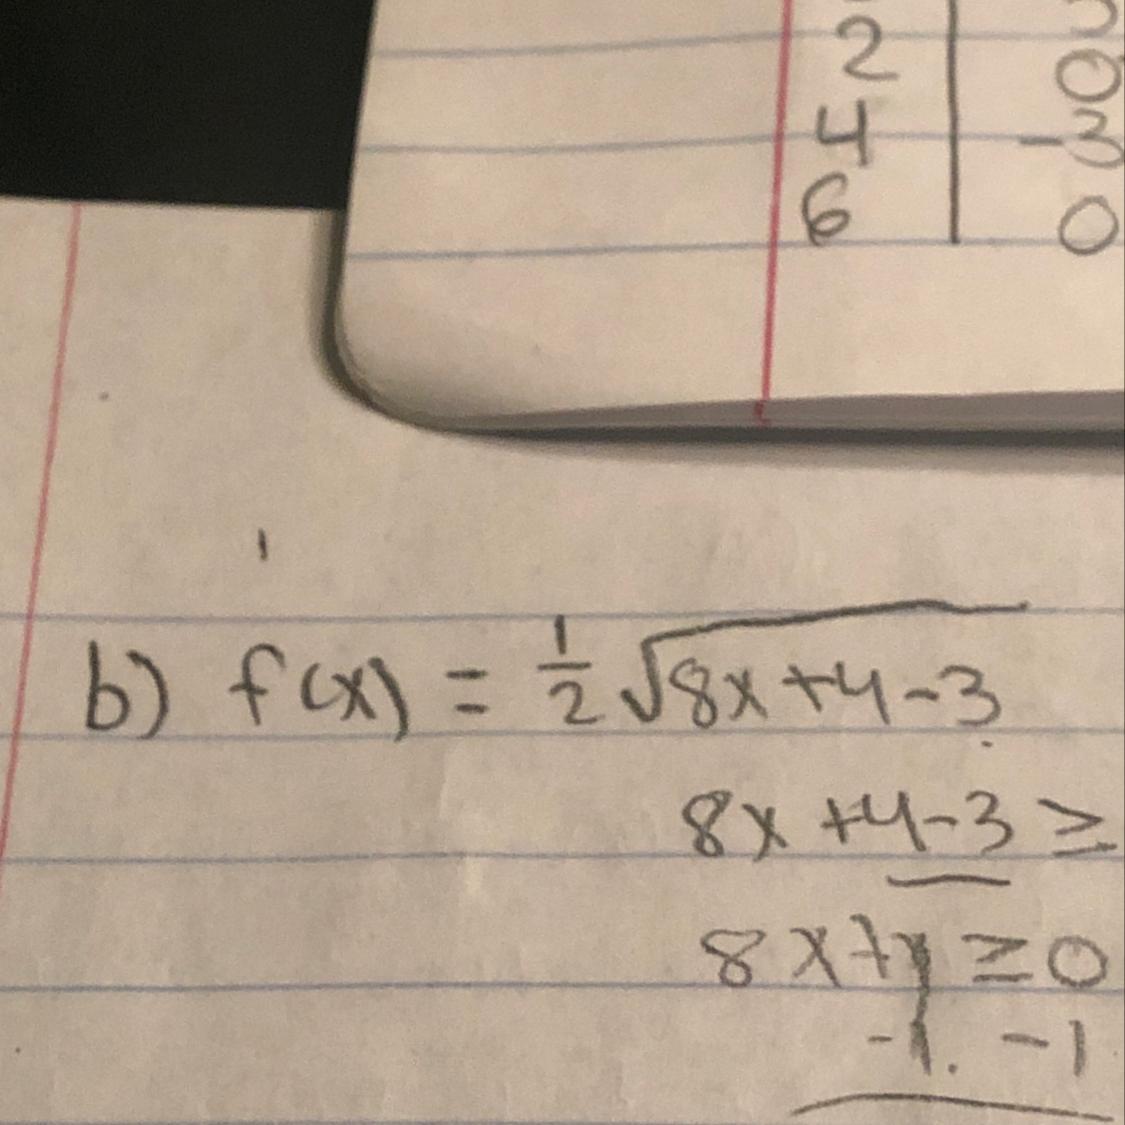 2 | 0
4 | -3
6 | 0
b) f(x) = 1/2 √(8x+4-3)
8x+4-3 ≥
8x+1 ≥ 0
-1 -1